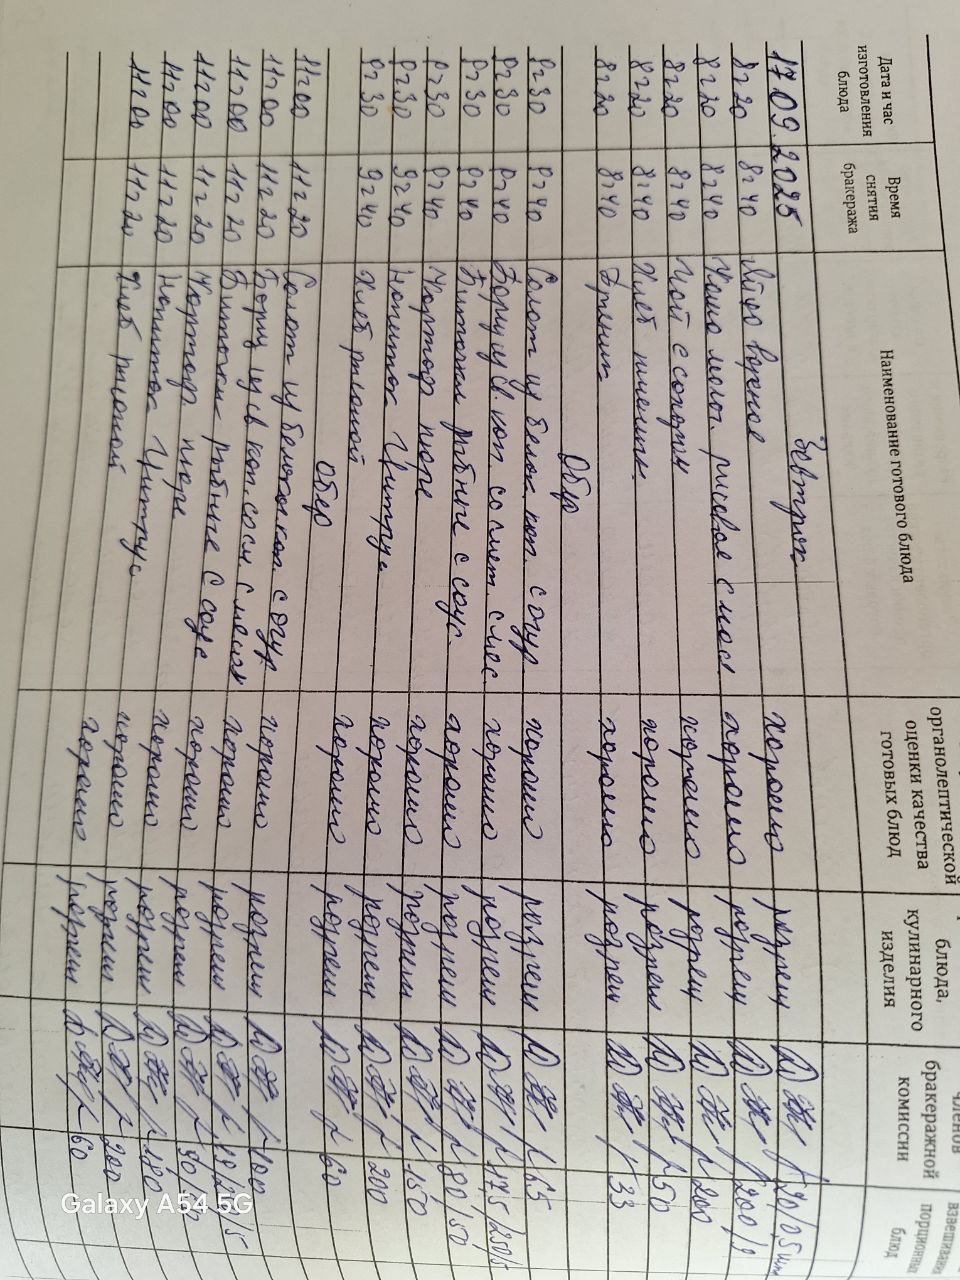 Дата и час изготовления блюда
Время снятия бракеража
Наименование готового блюда
органолептической оценки качества готовых блюд
блюда, кулинарного изделия
членов бракеражной комиссии
взвешивания порционных блюд
17.09.2025 Завтрак
8ч20 8ч40 Яйцо вареное хорошо разреш 20/0,5шт
8ч20 8ч40 Каша молоч. рисовая с масл хорошо разреш 200/
8ч20 8ч40 Чай с сахаром хорошо разреш 200
8ч20 8ч40 Хлеб пшенич. хорошо разреш 50
8ч20 8ч40 хорошо разреш 33
Обед
8ч30 8ч40 Салат из белок. кап. с огур. хорошо разреш 65
8ч30 8ч40 Борщ из св. кап со смет. с мяс хорошо разреш 17,5/250/5
8ч30 8ч40 Биточки рыбные с соус. хорошо разреш 80/50
8ч30 8ч40 Картоф пюре хорошо разреш 150
8ч30 9ч40 Напиток Цитрус хорошо разреш 200
8ч30 9ч40 Хлеб ржаной хорошо разреш 60
Обед
11ч00 11ч20 Салат из белокоч кап. с огур хорошо разреш 100
11ч00 11ч20 Борщ из св кап. со см. с мясом хорошо разреш
11ч00 11ч20 Биточки рыбные с соус хорошо разреш 90/50
11ч00 11ч20 Картоф пюре хорошо разреш 180
11ч00 11ч20 Напиток Цитрус хорошо разреш 200
11ч00 11ч20 Хлеб ржаной хорошо разреш 60
Galaxy A54 5G